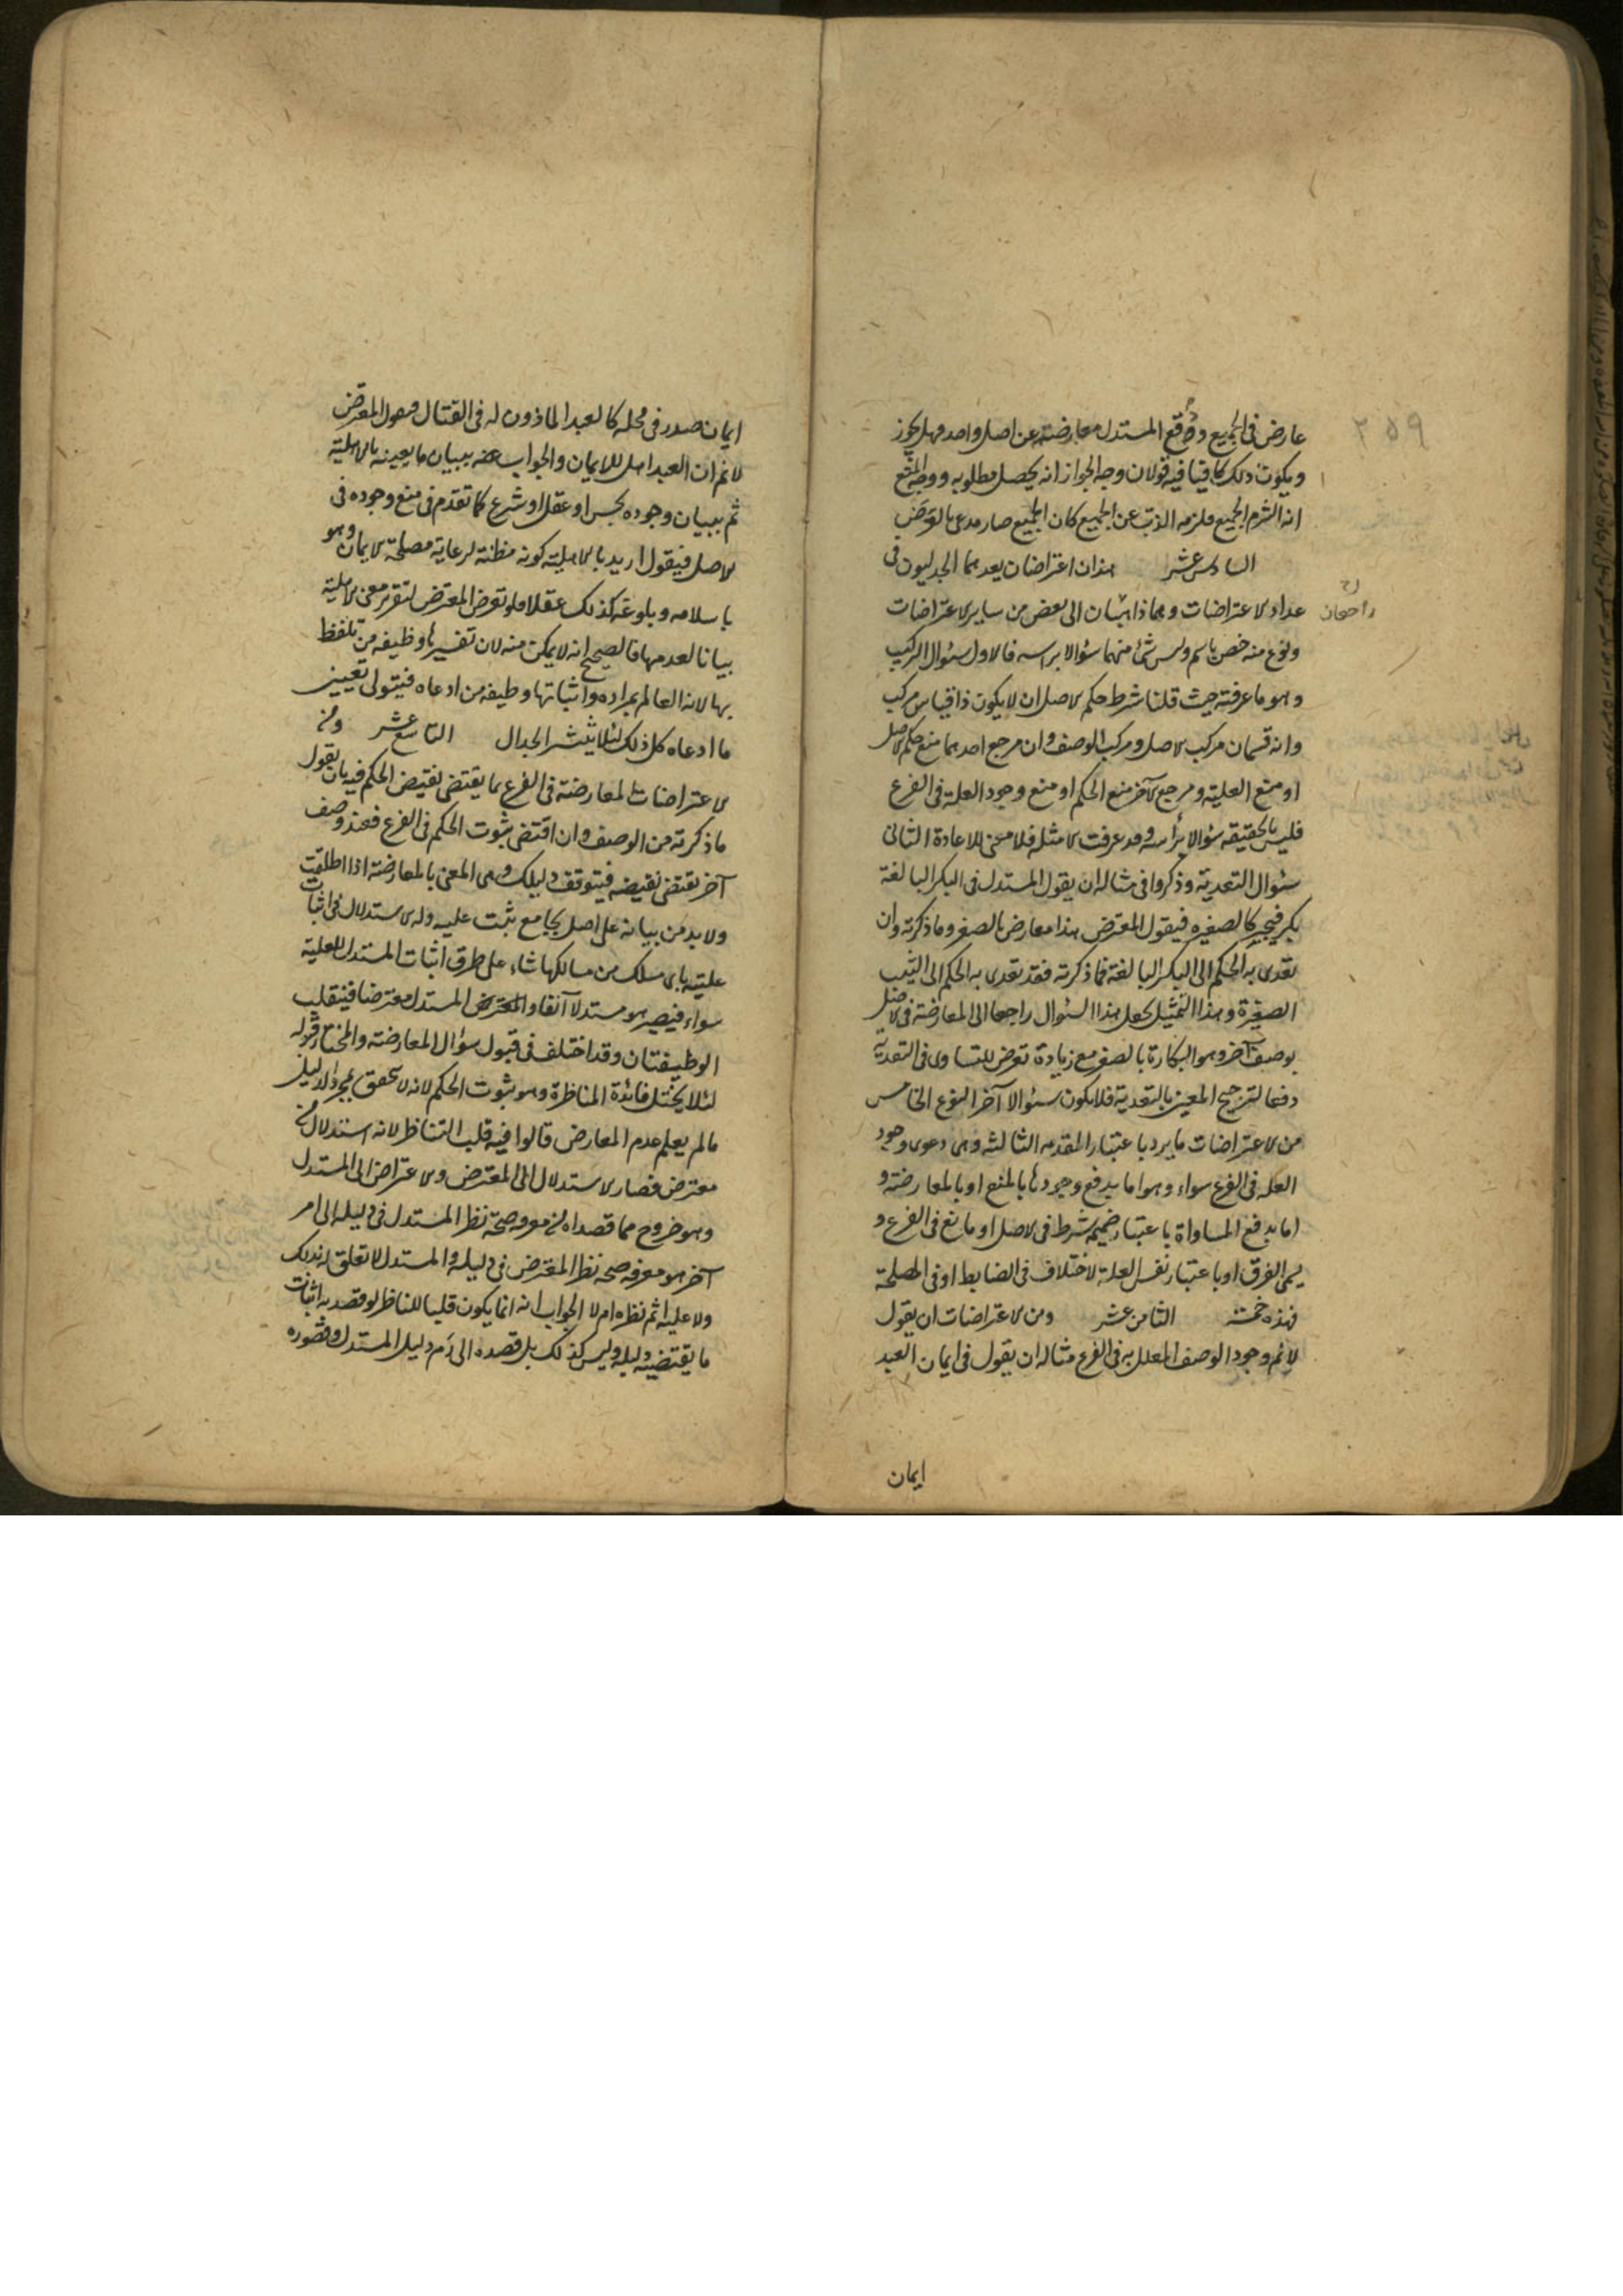 ٢٥٩
عارض في الجميع ودفع المستدل معارضته عن اصل واحد فهل يجوز
ويكون ذلك كافيا فيه قولان وجه الجواز انه يحصل مطلوبه ووجه المنع
انه التزم الجميع فلزمه الذب عن الجميع كان الجميع صار مدعى بالعرض
السادس عشر هذان اعتراضان يعدهما الجدليون في
عداد الاعتراضات وهما ذاهبان الى بعض من ساير الاعتراضات
راجعان
ونوع منه خص باسم وليس شئ منهما سؤالا براسه فالاول سئوال التركيب
وهو ما عرفته حيث قلنا شرط حكم الاصل ان لا يكون ذا قياس مركب
وانه قسمان مركب الاصل ومركب الوصف وان مرجع احدهما منع حكم الاصل
او منع العلية ومرجع الآخر منع الحكم او منع وجود العلة في الفرع
فليس بالحقيقه سؤالا برأسه وقد عرفت الامثله فلا معنى للاعادة الثاني
سئوال التعدية وذكروا في مثاله ان يقول المستدل في البكر البالغة
بكر فتجبر كالصغيره فيقول المعترض هذا معارض بالصغر وما ذكرته وان
تعدى به الحكم الى البكر البالغة فما ذكرته فقد تعدى به الحكم الى الثيب
الصغيرة وبهذا التمثيل يجعل هذا السئوال راجعا الى المعارضة في الاصل
بوصف آخر وهو البكارة بالصغر مع زيادة تعرض للتساوى في التعدية
دفعا لترجيح المعين بالتعدية فلا يكون سئوالا آخر النوع الخامس
من الاعتراضات ما يرد باعتبار المقدمه الثالثه وهى دعوى وجود
العله في الفرع سواء وهو اما بدفع وجودها بالمنع او بالمعارضة و
اما بدفع المساواة باعتبار ضميمه شرط في الاصل او مانع في الفرع و
يسمى الفرق او باعتبار نفس العلة لاختلاف في الضابط او في المصلحة
فهذه خمسة الثامن عشر ومن الاعتراضات ان يقول
لا نم وجود الوصف المعلل به في الفرع مثاله ان يقول في ايمان العبد
ايمان
ايمان صدر في محله كالعبد الماذون له في القتال فيقول المعترض
لا نم ان العبد اهل للايمان والجواب عنه ببيان ما يعينه بالاهلية
ثم ببيان وجوده بحس او عقل او شرع كما تقدم في منع وجوده في
الاصل فيقول اريد بالاهلية كونه مظنة لرعاية مصلحة الايمان وهو
باسلامه وبلوغه كذلك عقلا ولو تعرض المعترض لتقرير معنى الاهلية
بيانا لعدمها فالصحيح انه لا يمكن منه لان تفسيرها وظيفه من تلفظ
بها لانه العالم بمراده واثباتها وظيفه من ادعاه فيتولى تعيين
ما ادعاه كل ذلك لئلا ينتشر الجدال التاسع عشر ومن
الاعتراضات المعارضة في الفرع بما يقتضى نقيض الحكم فيه بان يقول
ما ذكرته من الوصف وان اقتضى ثبوت الحكم في الفرع فعندى وصف
آخر يقتضى نقيضه فيتوقف دليلك وهى المعنى بالمعارضة اذا اطلقت
ولا بد من بيانه على اصل بجامع ثبت عليه وله الاستدلال في اثبات
عليته باى مسلك من مسالكها شاء على طرق اثبات المستدل للعلية
سواء فيصير هو مستدلا آنفا والمعترض المستدل معترضا فينقلب
الوظيفتان وقد اختلف في قبول سؤال المعارضة والمختار قبوله
لئلا يختل فائدة المناظرة وهو ثبوت الحكم لانه لا يتحقق بمجرد الدليل
ما لم يعلم عدم المعارض قالوا فيه قلب التناظر لانه استدلال من
معترض فصار الاستدلال الى المعترض والاعتراض الى المستدل
وهو خروج مما قصداه من معرفه صحة نظر المستدل في دليله الى امر
آخر هو معرفه صحه نظر المعترض في دليله والمستدل لا تعلق له بذلك
ولا عليه اثم نظره ام لا الجواب انه انما يكون قلبا للتناظر لو قصد به اثبات
ما يقتضيه دليله وليس كذلك بل قصده الى هدم دليل المستدل وقصوره